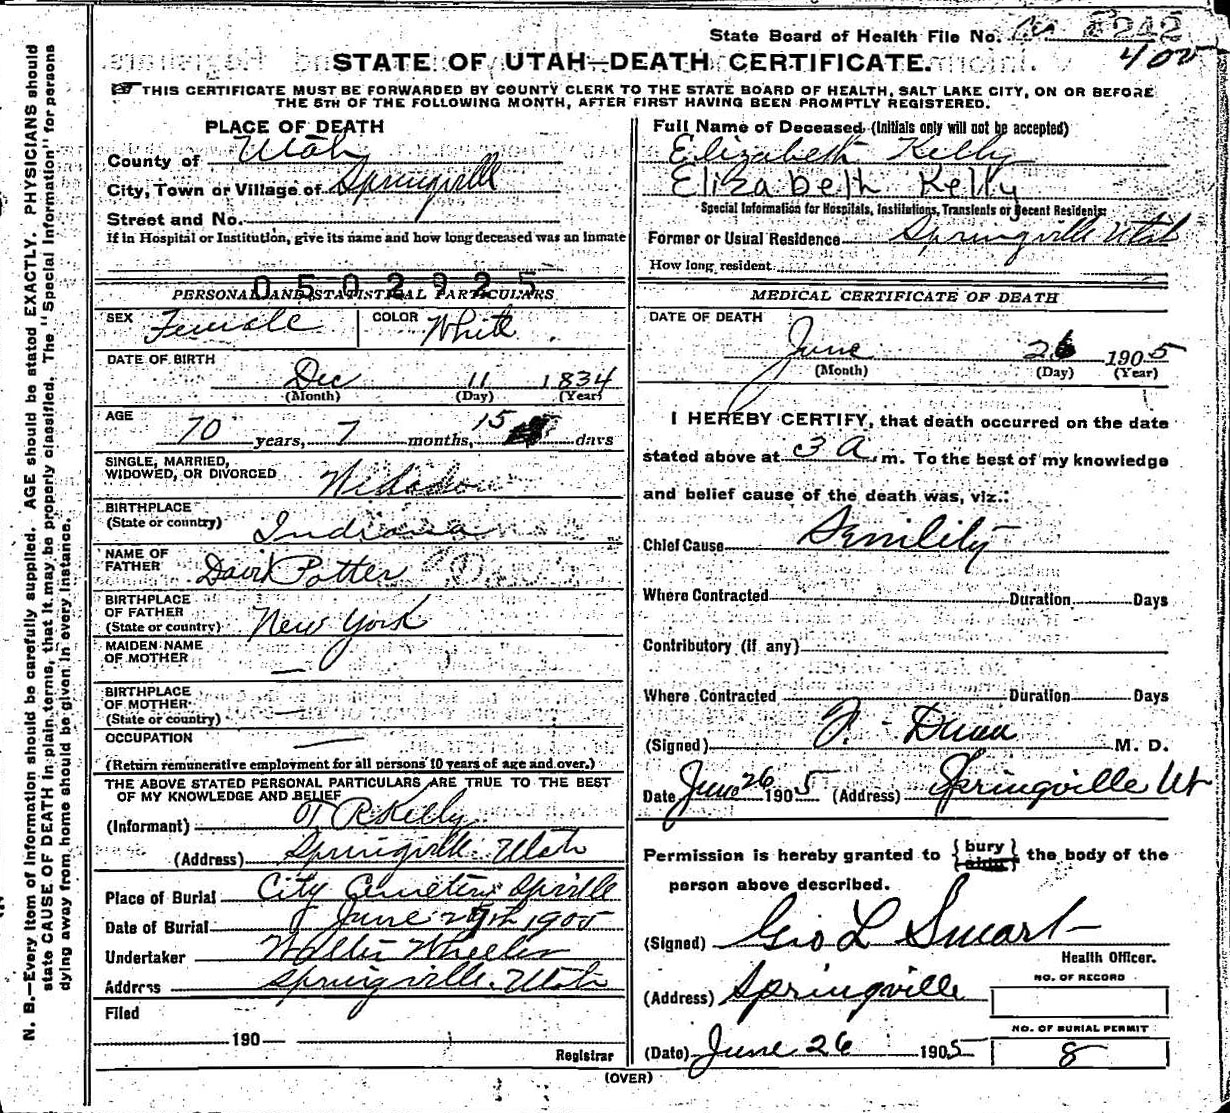 N. B.—Every item of information should be carefully supplied. AGE should be stated EXACTLY. PHYSICIANS should
state CAUSE OF DEATH in plain terms, that it may be properly classified. The "Special Information" for persons
dying away from home should be given in every instance.
State Board of Health File No. 8242
400
STATE OF UTAH—DEATH CERTIFICATE.
THIS CERTIFICATE MUST BE FORWARDED BY COUNTY CLERK TO THE STATE BOARD OF HEALTH, SALT LAKE CITY, ON OR BEFORE
THE 5TH OF THE FOLLOWING MONTH, AFTER FIRST HAVING BEEN PROMPTLY REGISTERED.
PLACE OF DEATH
County of Utah
City, Town or Village of Springville
Street and No.
If in Hospital or Institution, give its name and how long deceased was an inmate
0502925
PERSONAL AND STATISTICAL PARTICULARS
SEX Female COLOR White
DATE OF BIRTH
Dec 11 1834
(Month) (Day) (Year)
AGE
70 years, 7 months, 15 days
SINGLE, MARRIED,
WIDOWED, OR DIVORCED Widdow
BIRTHPLACE
(State or country) Indiana
NAME OF
FATHER David Potter
BIRTHPLACE
OF FATHER
(State or country) New York
MAIDEN NAME
OF MOTHER —
BIRTHPLACE
OF MOTHER
(State or country) —
OCCUPATION —
(Return remunerative employment for all persons 10 years of age and over.)
THE ABOVE STATED PERSONAL PARTICULARS ARE TRUE TO THE BEST
OF MY KNOWLEDGE AND BELIEF
(Informant) R Kelly
(Address) Springville Utah
Place of Burial City Cemetery Spville
Date of Burial June 27th 1905
Undertaker Walter Wheeler
Address Springville. Utah
Filed
190
Registrar
Full Name of Deceased (Initials only will not be accepted)
Elizabeth Kelly
Elizabeth Kelly
Special Information for Hospitals, Institutions, Transients or Recent Residents:
Former or Usual Residence Springville Utah
How long resident
MEDICAL CERTIFICATE OF DEATH
DATE OF DEATH
June 26 1905
(Month) (Day) (Year)
I HEREBY CERTIFY, that death occurred on the date
stated above at 3 a. m. To the best of my knowledge
and belief cause of the death was, viz.:
Chief Cause Senility
Where Contracted Duration Days
Contributory (if any)
Where Contracted Duration Days
(Signed) Dunn M. D.
Date June 26 1905 (Address) Springville Ut
Permission is hereby granted to { bury } the body of the
person above described.
(Signed) Geo L Smart
Health Officer.
(Address) Springville
NO. OF RECORD
NO. OF BURIAL PERMIT
(Date) June 26 1905 8
(OVER)